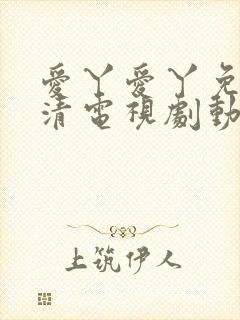 愛丫愛丫免
清電視劇動
上筑伊人